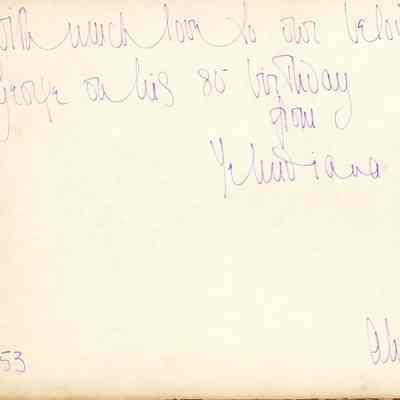 with much love to our belov
George on his 80 birthday
from
53